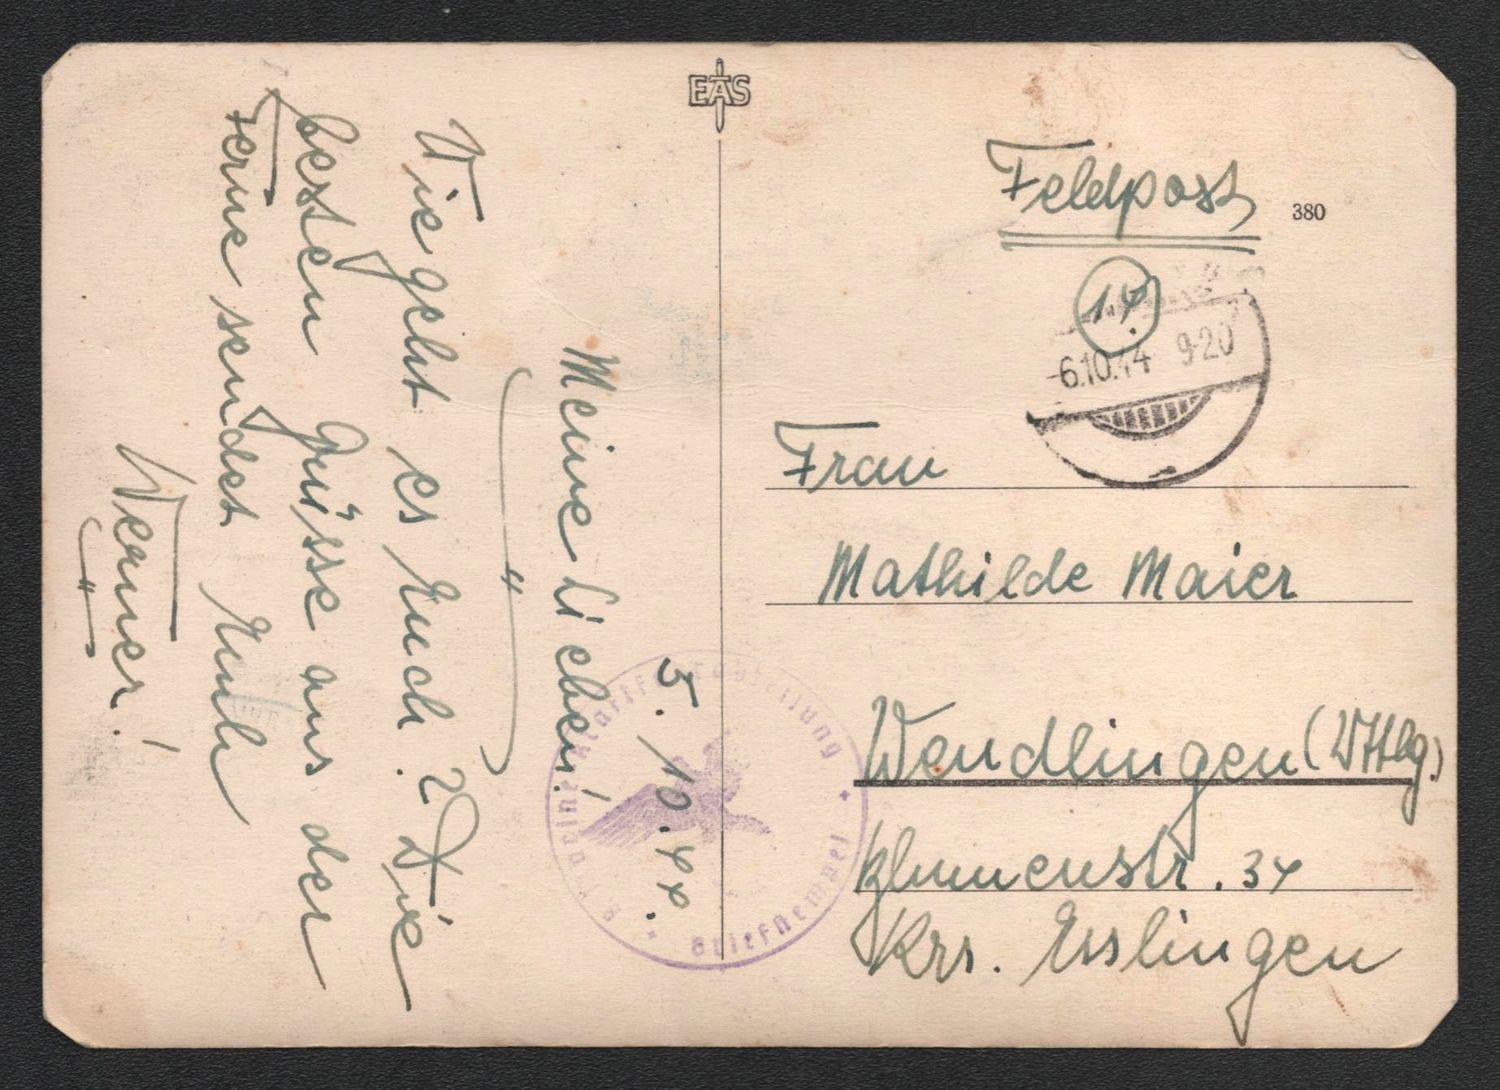 5.10.44.
Meine Lieben!
Wie geht es Euch? Die
besten Grüsse aus der
Ferne sendet Euch
Werner!
EAS
Feldpost
380
14
-6.10.44 9-20
Frau
Mathilde Maier
Wendlingen (Wttbg.)
Blumenstr. 34
Krs. Esslingen
Briefstempel